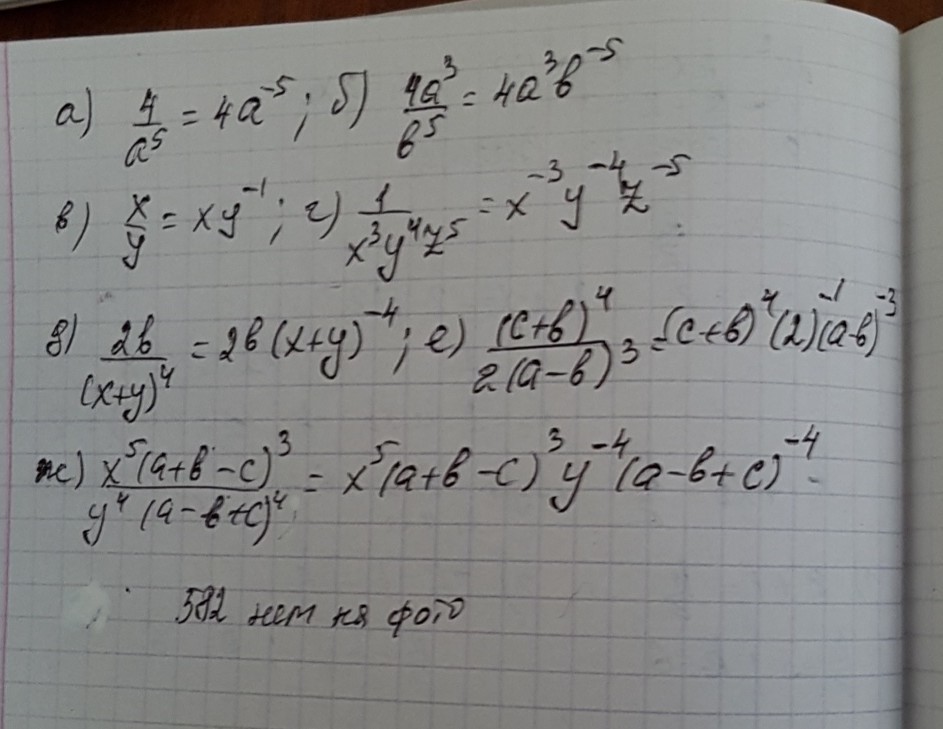 а) 4/a⁵ = 4a⁻⁵; б) 4a³/b⁵ = 4a³b⁻⁵
в) x/y = xy⁻¹; г) 1/x³y⁴z⁵ = x⁻³y⁻⁴z⁻⁵
д) 2b/(x+y)⁴ = 2b(x+y)⁻⁴; е) (c+b)⁴/2(a-b)³ = (c+b)⁴(2)⁻¹(a-b)⁻³
ж) x⁵(a+b-c)³/y⁴(a-b+c)⁴ = x⁵(a+b-c)³y⁻⁴(a-b+c)⁻⁴
582 нет на фото